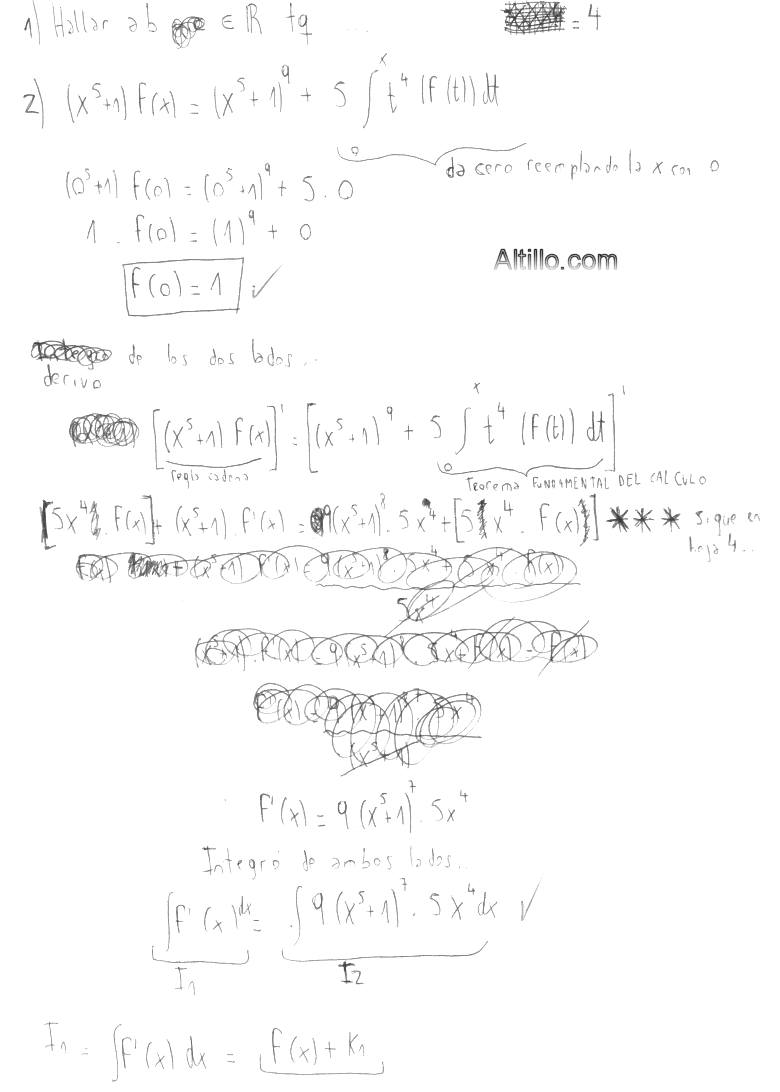 1) Hallar ab ∈ ℝ tq ... = 4
2) (x⁵+1) f(x) = (x⁵+1)⁹ + 5 ∫₀ˣ t⁴ (f(t)) dt
da cero reemplando la x con 0
(0⁵+1) f(0) = (0⁵+1)⁹ + 5 . 0
1 . f(0) = (1)⁹ + 0
Altillo.com
f(0) = 1 ✓
de los dos lados...
derivo
[(x⁵+1) f(x)]' = [(x⁵+1)⁹ + 5 ∫₀ˣ t⁴ (f(t)) dt]'
regla cadena
Teorema FUNDAMENTAL DEL CALCULO
[5x⁴ . f(x)] + (x⁵+1) . f'(x) = 9(x⁵+1)⁸ . 5x⁴ + [5 x⁴ . f(x)] ✱✱✱ sigue en
hoja 4...
f'(x) = 9 (x⁵+1)⁷ . 5x⁴
Integro de ambos lados...
∫ f'(x) dx = ∫ 9 (x⁵+1)⁷ . 5x⁴ dx ✓
I₁ I₂
I₁ = ∫ f'(x) dx = f(x) + K₁